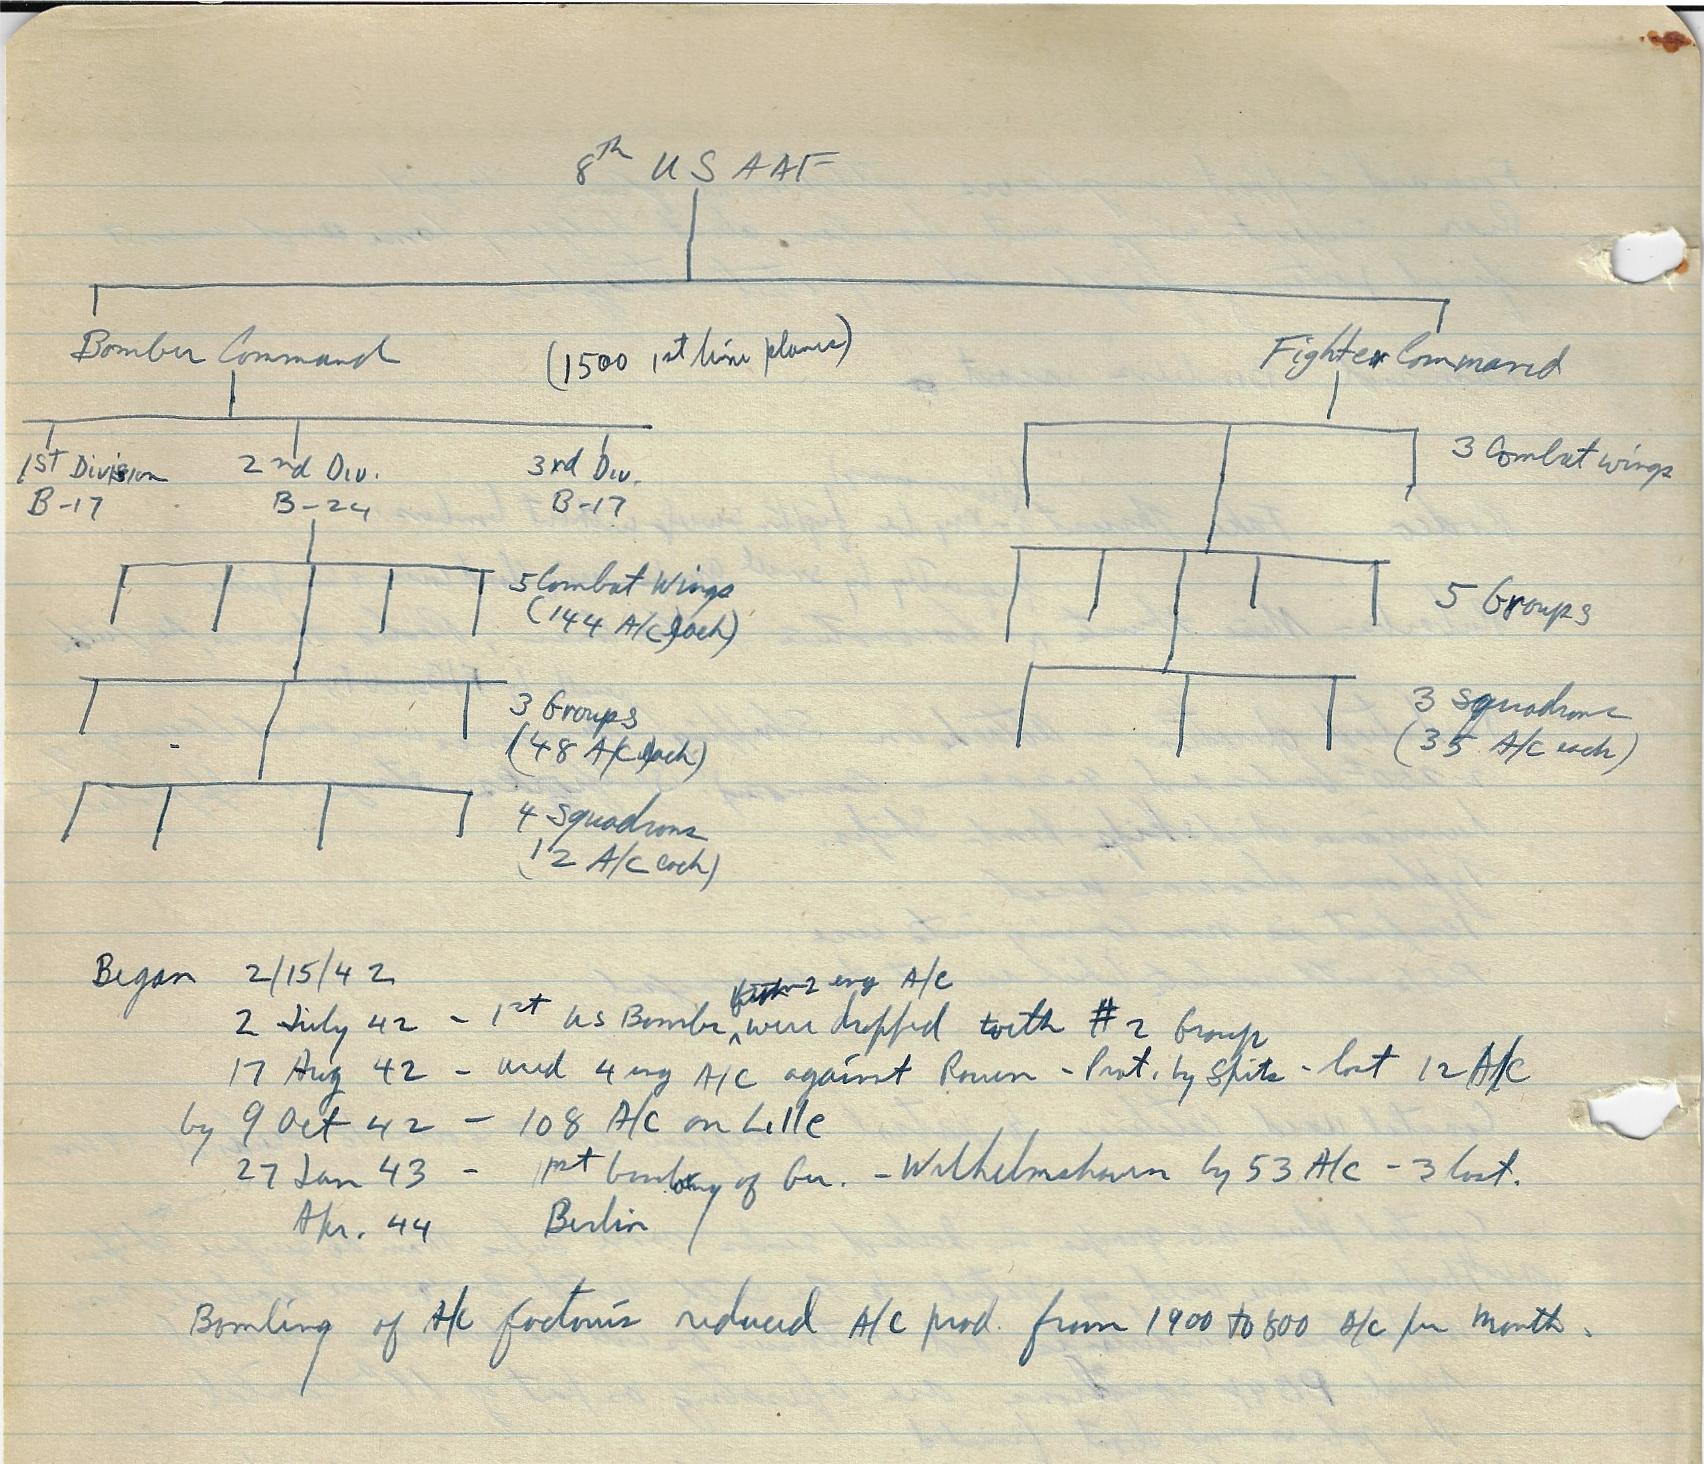 8th US AAF
Bomber Command (1500 1st line planes) Fighter Command
1st Division 2nd Div. 3rd Div. 3 Combat wings
B-17 B-24 B-17
5 Combat Wings 5 Groups
(144 A/C each)
3 Groups 3 Squadrons
(48 A/C each) (35 A/C each)
4 Squadrons
(12 A/C each)
Began 2/15/42
2 eng A/C
2 July 42 - 1st US Bombs were dropped with #2 Group
17 Aug 42 - used 4 eng A/C against Rouen - Prot. by Spits - lost 12 A/C
by 9 Oct 42 - 108 A/C on Lille
27 Jan 43 - 1st bombing of Ger. - Wilhelmshaven by 53 A/C - 3 lost.
Apr. 44 Berlin
Bombing of A/C factories reduced A/C prod. from 1900 to 800 A/C per Month.